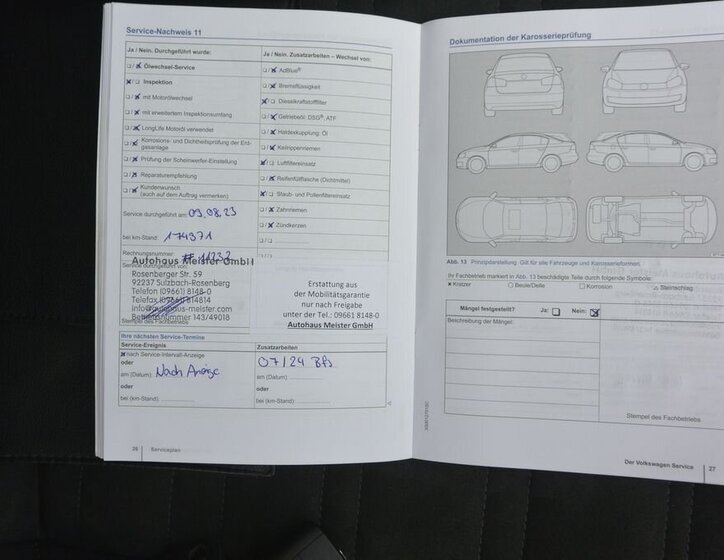 Service-Nachweis 11
Ja / Nein. Durchgeführt wurde:
Ölwechsel-Service
Inspektion
mit Motorölwechsel
mit erweitertem Inspektionsumfang
LongLife Motoröl verwendet
Korrosions- und Dichtheitsprüfung der Erd-
gasanlage
Prüfung der Scheinwerfer-Einstellung
Reparaturempfehlung
Kundenwunsch
(auch auf dem Auftrag vermerken)
Service durchgeführt am: 09.08.23
bei km-Stand: 174371
Rechnungsnummer:
Autohaus Meister GmbH
Rosenberger Str. 59
92237 Sulzbach-Rosenberg
Telefon (09661) 8148-0
Telefax (09661) 814814
info@autohaus-meister.com
Betriebsnummer 143/49018
Stempel des Fachbetriebs
Ja / Nein. Zusatzarbeiten – Wechsel von:
AdBlue®
Bremsflüssigkeit
Dieselkraftstofffilter
Getriebeöl: DSG®, ATF
Haldexkupplung: Öl
Keilrippenriemen
Luftfiltereinsatz
Reifenfüllflasche (Dichtmittel)
Staub- und Pollenfiltereinsatz
Zahnriemen
Zündkerzen
Erstattung aus
der Mobilitätsgarantie
nur nach Freigabe
unter der Tel.: 09661 8148-0
Autohaus Meister GmbH
Ihre nächsten Service-Termine
Service-Ereignis
Zusatzarbeiten
nach Service-Intervall-Anzeige
oder
am (Datum): Nach Anzeige
oder
bei (km-Stand)
07/24 Bfs
am (Datum):
oder
bei (km-Stand)
26 Serviceplan
Dokumentation der Karosserieprüfung
Abb. 13 Prinzipdarstellung: Gilt für alle Fahrzeuge und Karosserieformen.
Ihr Fachbetrieb markiert in Abb. 13 beschädigte Teile durch folgende Symbole:
× Kratzer ○ Beule/Delle □ Korrosion △ Steinschlag
Mängel festgestellt? Ja: Nein:
Beschreibung der Mängel:
Stempel des Fachbetriebs
Der Volkswagen Service 27